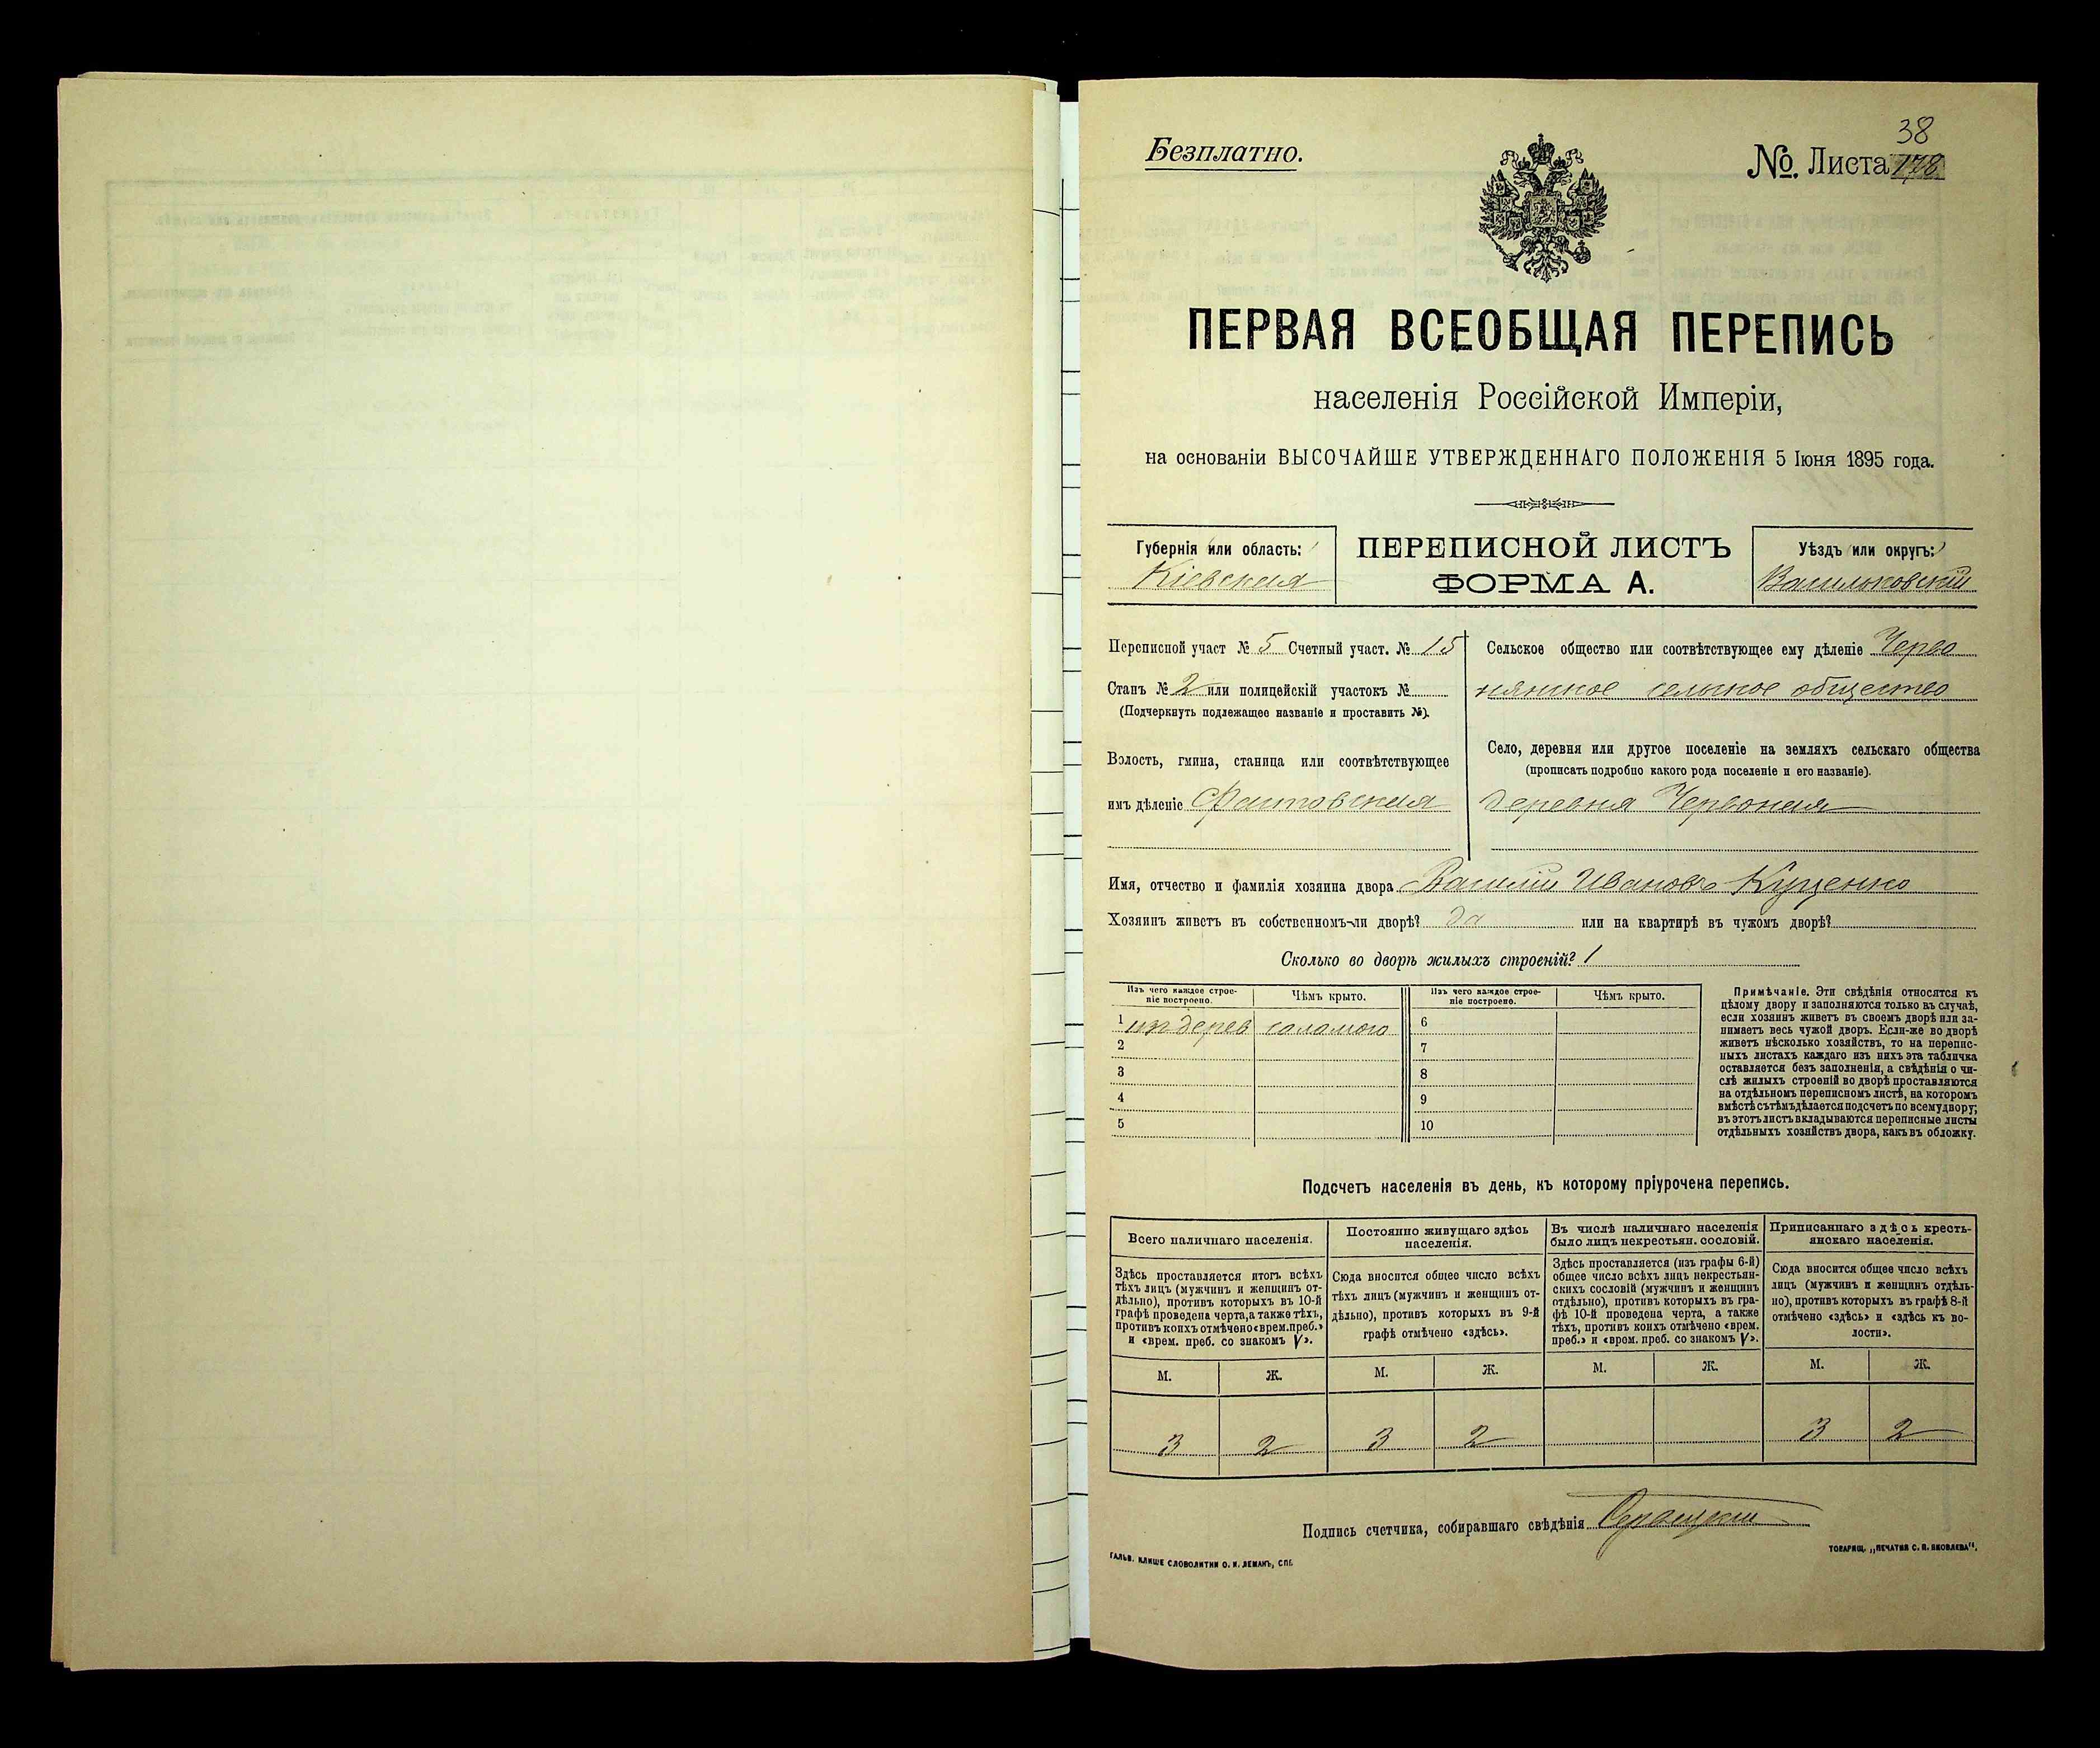 38
Безплатно.
№. Листа 178
ПЕРВАЯ ВСЕОБЩАЯ ПЕРЕПИСЬ
населенія Россійской Имперіи,
на основаніи ВЫСОЧАЙШЕ УТВЕРЖДЕННАГО ПОЛОЖЕНІЯ 5 Іюня 1895 года.
Губернія или область:
Кіевская
ПЕРЕПИСНОЙ ЛИСТЪ
ФОРМА А.
Уѣздъ или округъ:
Васильковскій
Переписной участ № 5 Счетный участ. № 15
Станъ № 2 или полицейскій участокъ №
(Подчеркнуть подлежащее названіе и проставить №).
Волость, гмина, станица или соотвѣтствующее
имъ дѣленіе Фастовская
Сельское общество или соотвѣтствующее ему дѣленіе Черво
нянское сельское общество
Село, деревня или другое поселеніе на земляхъ сельскаго общества
(прописать подробно какого рода поселеніе и его названіе).
деревня Червоная
Имя, отчество и фамилія хозяина двора Василій Ивановъ Куценко
Хозяинъ живетъ въ собственномъ-ли дворѣ? да или на квартирѣ въ чужомъ дворѣ?
Сколько во дворѣ жилыхъ строеній? 1
Изъ чего каждое строе-
ніе построено.
Чѣмъ крыто.
Изъ чего каждое строе-
ніе построено.
Чѣмъ крыто.
1 изъ дерев соломою 6
2 7
3 8
4 9
5 10
Примѣчаніе. Эти свѣдѣнія относятся къ
цѣлому двору и заполняются только въ случаѣ,
если хозяинъ живетъ въ своемъ дворѣ или за-
нимаетъ весь чужой дворъ. Если-же во дворѣ
живетъ нѣсколько хозяйствъ, то на перепис-
ныхъ листахъ каждаго изъ нихъ эта табличка
оставляется безъ заполненія, а свѣдѣнія о чи-
слѣ жилыхъ строеній во дворѣ проставляются
на отдѣльномъ переписномъ листѣ, на которомъ
вмѣстѣ съ тѣмъ дѣлается подсчетъ по всему двору;
въ этотъ листъ вкладываются переписные листы
отдѣльныхъ хозяйствъ двора, какъ въ обложку.
Подсчетъ населенія въ день, къ которому пріурочена перепись.
Всего наличнаго населенія.
Здѣсь проставляется итогъ всѣхъ
тѣхъ лицъ (мужчинъ и женщинъ от-
дѣльно), противъ которыхъ въ 10-й
графѣ проведена черта, а также тѣхъ,
противъ коихъ отмѣчено «врем. преб.»
и «врем. преб. со знакомъ V».
Постоянно живущаго здѣсь
населенія.
Сюда вносится общее число всѣхъ
тѣхъ лицъ (мужчинъ и женщинъ от-
дѣльно), противъ которыхъ въ 9-й
графѣ отмѣчено «здѣсь».
Въ числѣ наличнаго населенія
было лицъ некрестьян. сословій.
Здѣсь проставляется (изъ графы 6-й)
общее число всѣхъ лицъ некрестьян-
скихъ сословій (мужчинъ и женщинъ
отдѣльно), противъ которыхъ въ гра-
фѣ 10-й проведена черта, а также
тѣхъ, противъ коихъ отмѣчено «врем.
преб.» и «врем. преб. со знакомъ V».
Приписаннаго здѣсь кресть-
янскаго населенія.
Сюда вносится общее число всѣхъ
лицъ (мужчинъ и женщинъ отдѣль-
но), противъ которыхъ въ графѣ 8-й
отмѣчено «здѣсь» и «здѣсь къ во-
лости».
М. Ж. М. Ж. М. Ж. М. Ж.
3 2 3 2 3 2
Подпись счетчика, собиравшаго свѣдѣнія
ГАЛЬВ. КЛИШЕ СЛОВОЛИТНИ О. И. ЛЕМАНЪ, СПБ.
ТОВАРИЩ. „ПЕЧАТНЯ С. П. ЯКОВЛЕВА".